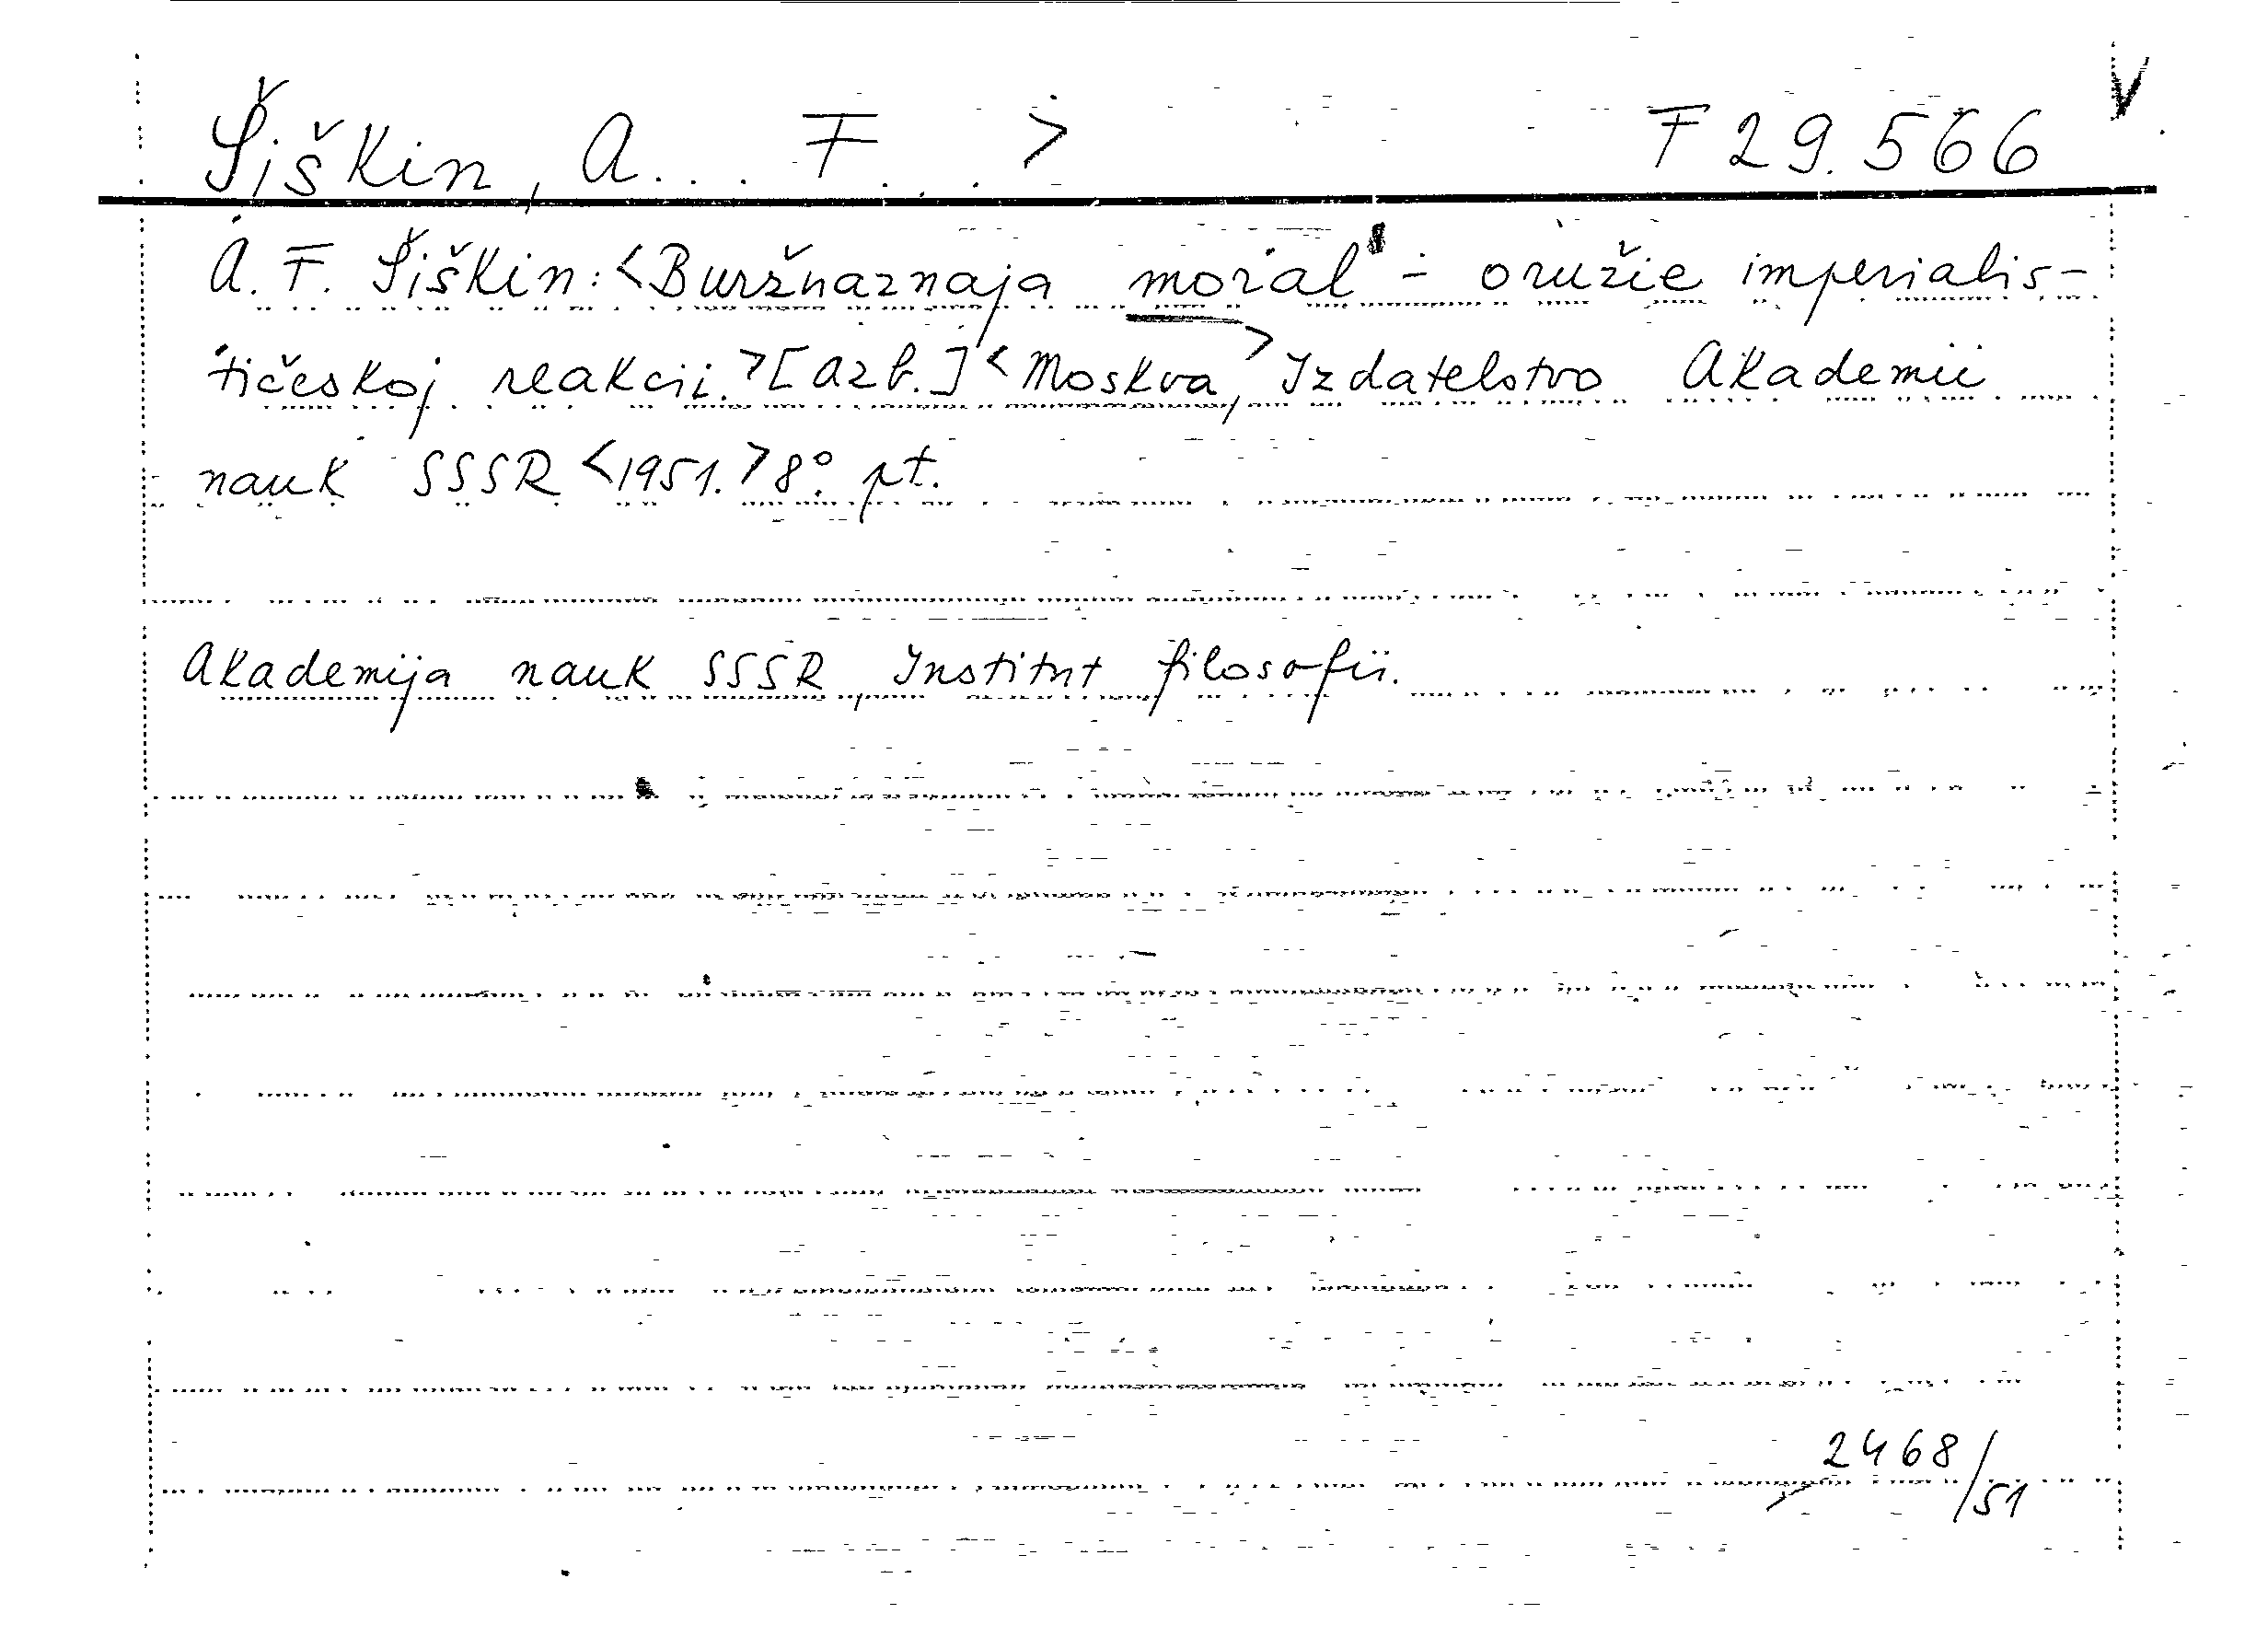 Šiškin, A... F...> F 29.566 V
A. F. Šiškin: <Buržnaznaja moral' - oružie imperialis-
tičeskoj reakcii.> [azb.] <Moskva,> Izdatelstvo Akademii
nauk SSSR <1951.> 8°. pt.
Akademija nauk SSSR, Institut filosofii.
2468/51